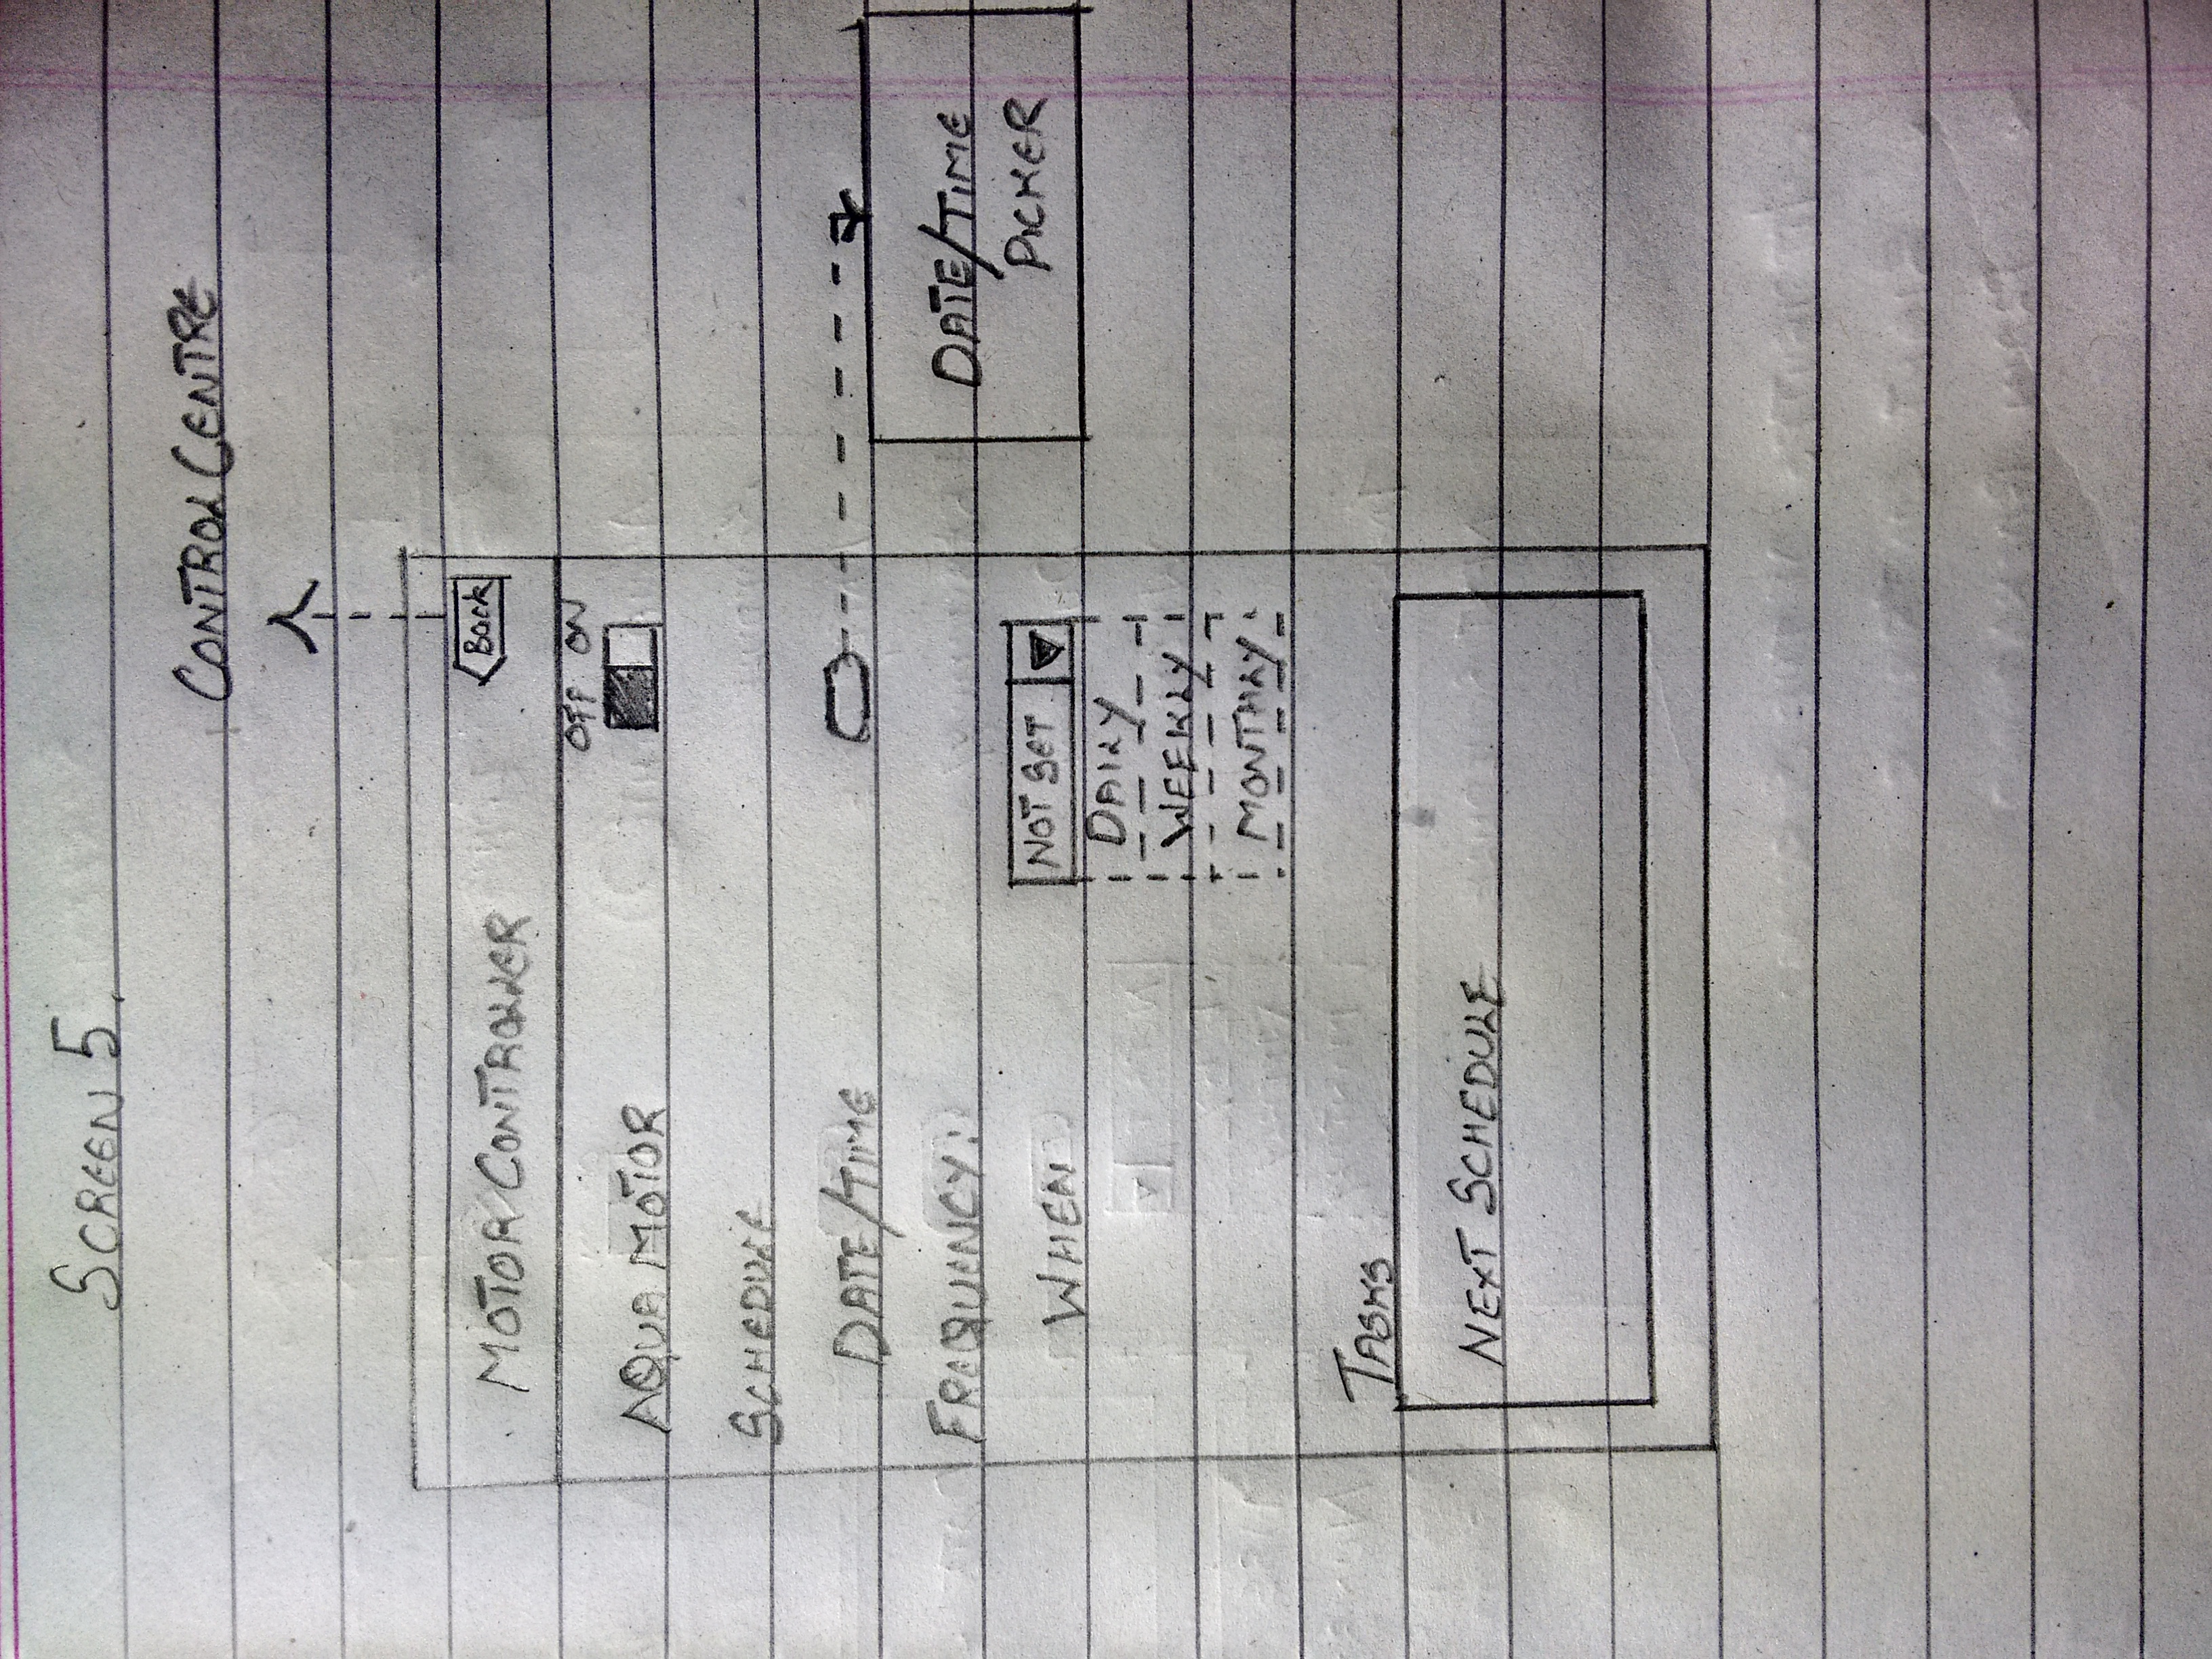 SCREEN 5.
CONTROL CENTRE
MOTOR CONTROLLER
Back
OFF ON
AQUA MOTOR
SCHEDULE
DATE/TIME
DATE/TIME
PICKER
FREQUENCY:
WHEN
NOT SET
DAILY
WEEKLY
MONTHLY
TASKS
NEXT SCHEDULE